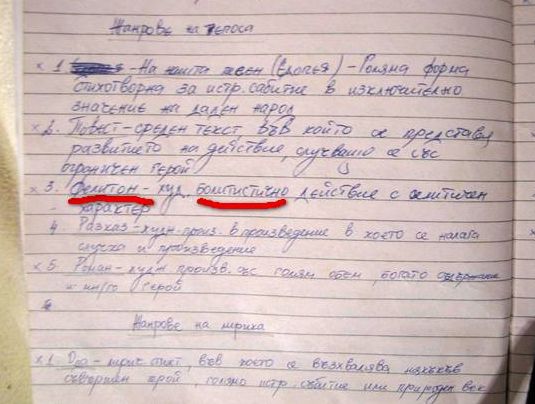 Жанрове на епоса
х 1. На нашта песен (Епопея) - Голяма форма
стихотворна за истр. сабитие в изключително
значение на даден народ
х 2. Повест - среден текст, във който се представя
развитието на действие, случващо се със
ограничен герой
х 3. Фелитон - худ. болитистично действие с
характер
4. Разказ - худн. произ. в произведение в което се налага
случка и произведение
х 5. Роман - худн. произв. със голям обем, богато
и много герой
Жанрове на лирика
х 1. Ода - лирич. текст, във което се възхвалява някакъв
съвършен герой, голямо истр. събитие или природен